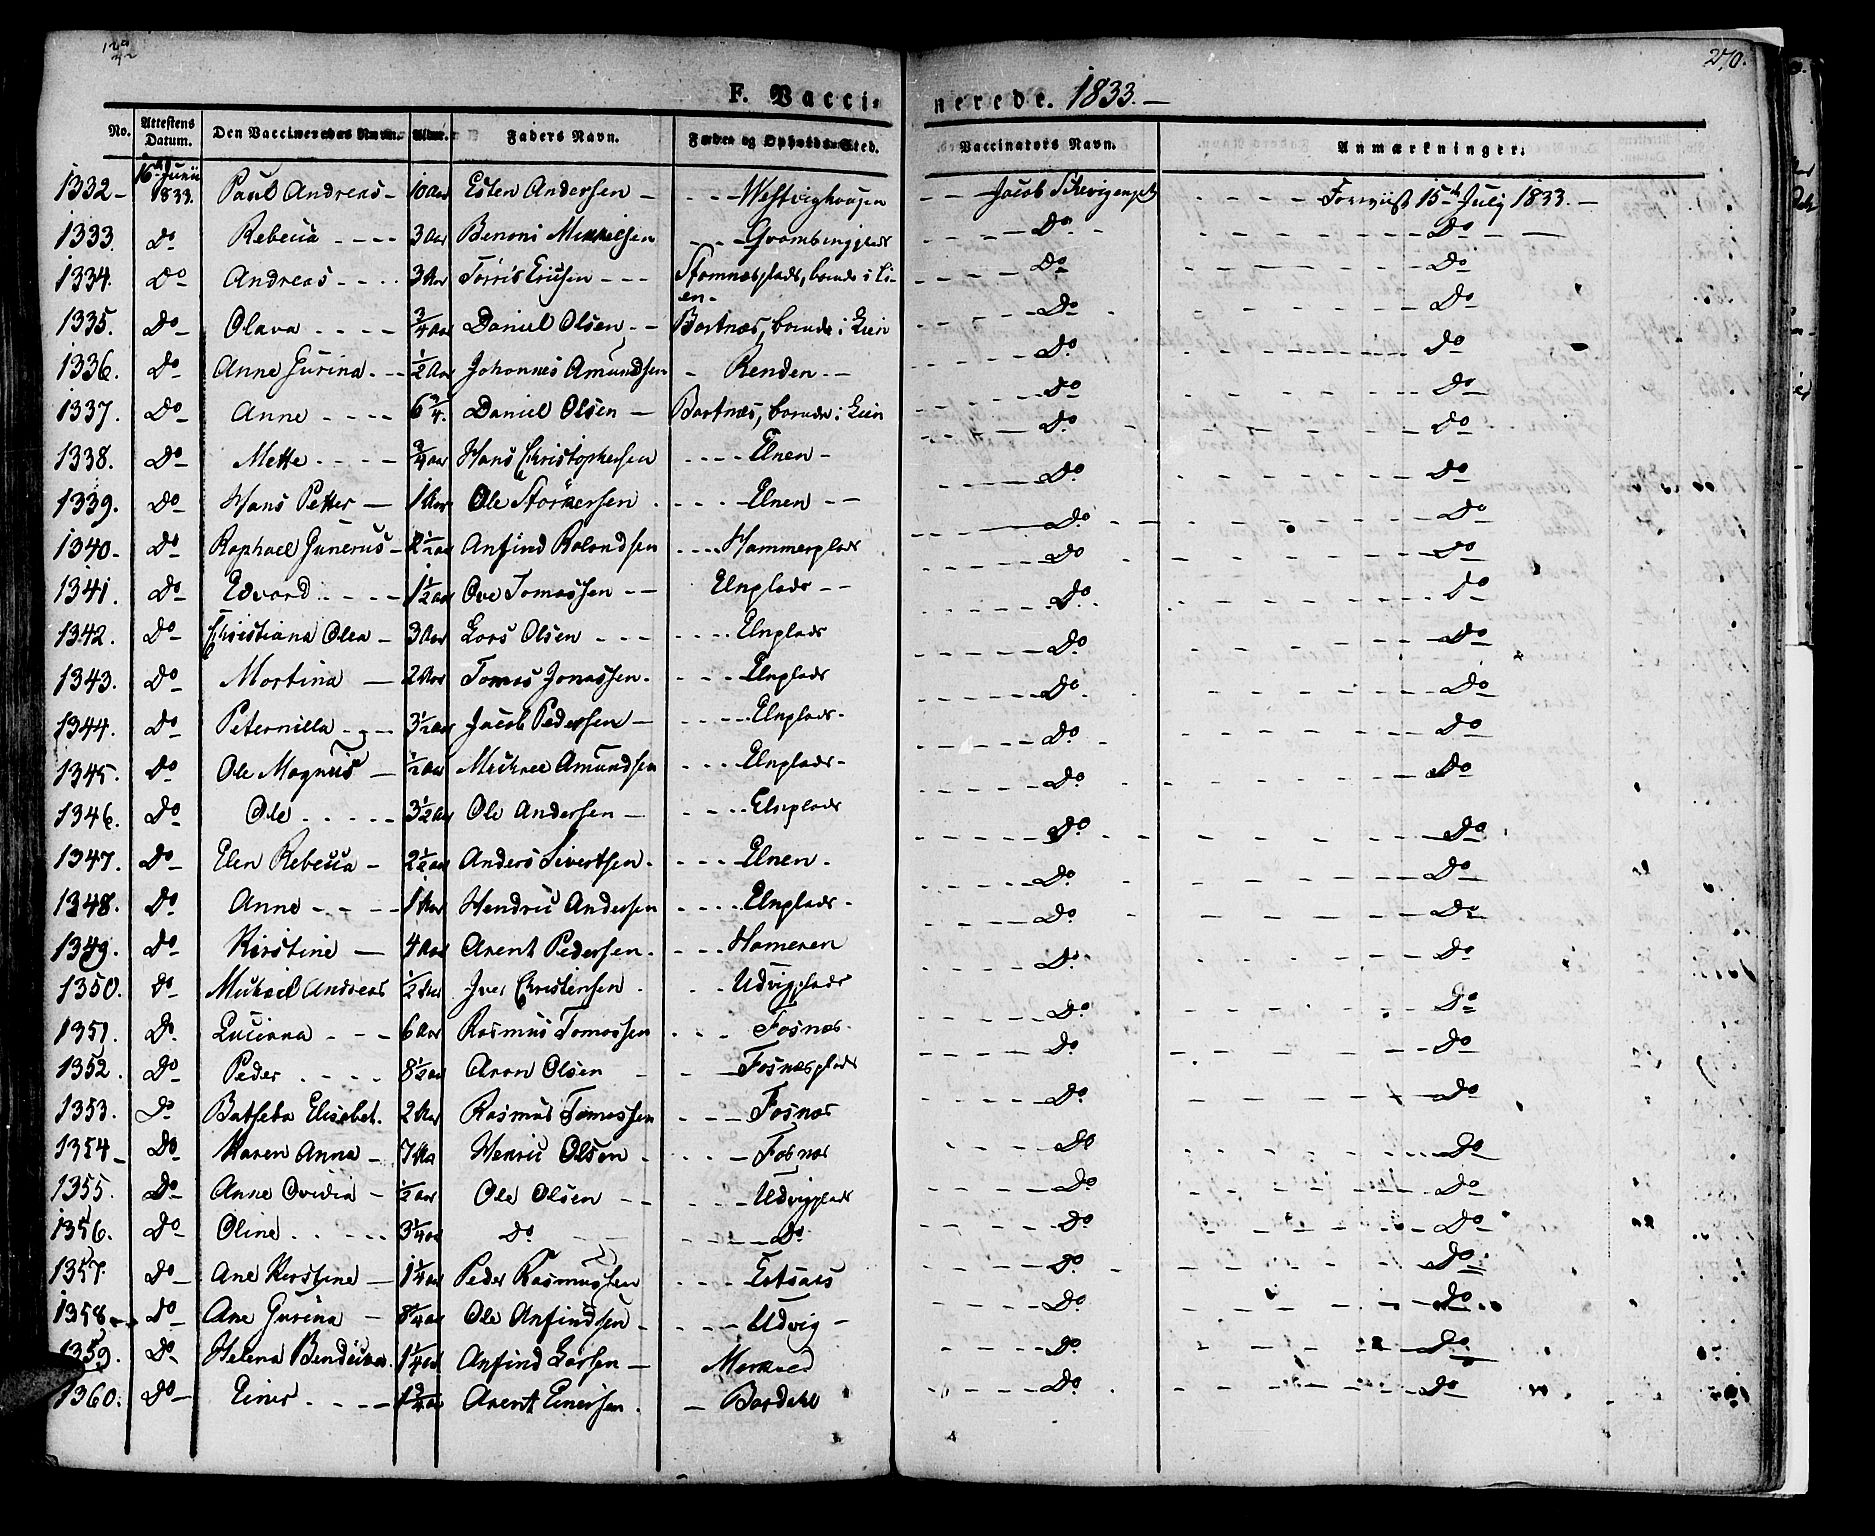 270.
F. Vaccinerede. 1833. —
No. Attestens Datum. Den Vaccineredes Navn. Alder. Faders Navn. Fødses og Opholds-Sted. Vaccinators Navn. Anmærkninger.
1332 – 16 Junii 1833. Paul Andreas – 10 Aar Esten Andersen – Westvighougen – – Jacob – – – – 15de July 1833. –
1333. Do Rebecca - - - - 3 Aar Benoni Mikkelsen - - - Do - - - Do
1334. Do Andreas - - - - 3 Aar Torris Ericsen - - - Stamnesplads, boende i Lien - - - Do - - - Do
1335. Do Olava - - - - 3/4 Aar Daniel Olsen - - Bartnæs, boende i Lien - - - Do - - - Do
1336. Do Anne Gurina - - - 1/2 Aar Johannes Amundsen - Renden - - - - - Do - - - Do
1337. Do Anne - - - - 6 3/4. Daniel Olsen — Bartnæs, boende i Lien - - - Do - - - Do
1338. Do Mette - - - - 3/4 Aar Hans Christophersen - - - - Elnen - - - - Do - - - Do
1339. Do Hans Petter — 1 Aar Ole Storkersen - - - - Elnen - - - - - Do - - - Do
1340. Do Raphael Gunerus – 2 1/2 Aar Anfind Rolandsen - - - - Hammerplads - - - Do - - - Do
1341. Do Edvard - - - - 1 1/2 Aar Ove Tomassen - - Elnplads - - - - - Do - - - Do
1342. Do Christiana Olea - 3 Aar Lars Olsen - - - - - - - Elnplads - - - Do - - - Do
1343. Do Martina — 2 Aar Tomas Jonassen - - - - Elnplads - - - Do - - - Do
1344. Do Peternilla - - - 3 1/2 Aar Jacob Pedersen — - - - - Elnplads - - - - Do - - - Do
1345. Do Ole Magnus — 1/2 Aar Mickael Amundsen - - - - Elnplads - - - - Do - - - Do
1346. Do Ole - - - - - 3 1/2 Aar Ole Andersen — - - - - Elnplads - - - Do - - - Do
1347. Do Elen Rebecca - 2 1/2 Aar Anders Sivertsen - - - - Elnen - - - - Do - - - Do
1348. Do Anne - - - - 1 Aar Hendric Andersen - - - - Elnplads - - - - Do - - - Do
1349. Do Kirstine — 4 Aar Arent Pedersen - - - - Hameren - - - Do - - - Do
1350. Do Mickael Andreas 1/2 Aar Iver Christensen - - Udvigplads - - - Do - - - Do
1351. Do Luciana - - - 6 Aar Rasmus Tomassen - - - Fosnæs - - - - Do - - - Do
1352. Do Peder - - - - 8 1/2 Aar Aron Olsen - - — Fosnæsplads - - - Do - - - Do
1353. Do Batseba Elisabet. 2 Aar Rasmus Tomassen - - - Fosnæs - - - Do - - - Do
1354 – Do Karen Anna - 7 Aar Henric Olsen - - - - Fosnæs - - - Do - - - Do
1355. Do Anne Ovidia - 1/2 Aar Ole Olsen - - - - - Udvigplads - - - Do - - - Do
1356. Do Oline - - - - - 3 1/4 Aar Do - - - - Do - - - Do - - - Do
1357. Do Ane Kirstine — 1 1/4 Aar Peder Rasmussen - - - - - - Do - - - Do
1358 - - Do Ane Gurina — 8 1/4 Aar Ole Anfindsen - - - - Udvig – - - - Do - - - Do
1359. Do Helena 1 1/4 Aar Anfind Larsen — - - - Do - - - Do
1360. Do — Einer - - - - 1 3/4 Aar Arent Einersen - — Bardahl - - - Do - - - Do